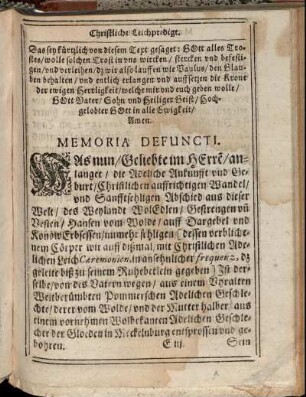 Christliche Leichpredigt.
Das sey kürtzlich von diesem Text gesaget: GOtt alles Tro-
stes/ wolle solchen Trost in vns wircken/ stercken vnd befesti-
gen/ vnd verleihen/ dz wir also lauffen wie Paulus/ den Glau-
ben behalten/ vnd entlich erlangen vnd auffsetzen die Krone
der ewigen Herrligkeit/ welche mir vnd euch geben wolle/
GOtt Vater/ Sohn vnd Heiliger Geist/ Hoch-
gelobter GOtt in alle Ewigkeit/
Amen.
MEMORIA DEFUNCTI.
WAs nun/ Geliebte im HErrē/ an-
langet/ die Adeliche Ankunfft vnd Ge-
burt/ Christlichen auffrichtigen Wandel/
vnd Sanfftsehligen Abschied aus dieser
Welt/ des Weylandt WolEdlen/ Gestrengen vñ
Vesten/ Hansen vom Wolde/ auff Dargebet vnd
Konow Erbsessen/ nunmehr sehligen (dessen verbliche-
nem Cörper wir auff dißmal/ mit Christlichen Ade-
lichen Leich Ceremonien, in ansehnlicher frequenz, dz
geleite biß zu seinem Ruhebetlein gegeben) Ist der-
selbe/ von des Vatern wegen/ aus einem Vyralten
Weitberümbten Pommerschen Adelichen Geschle-
chte/ derer vom Wolde/ vnd der Mutter halber/ aus
einem vornehmen Wolbekanten Adelichen Geschle-
chte der Gloeden in Mecklnburg entsprossen vnd ge-
bohren.
E iij.
Sein